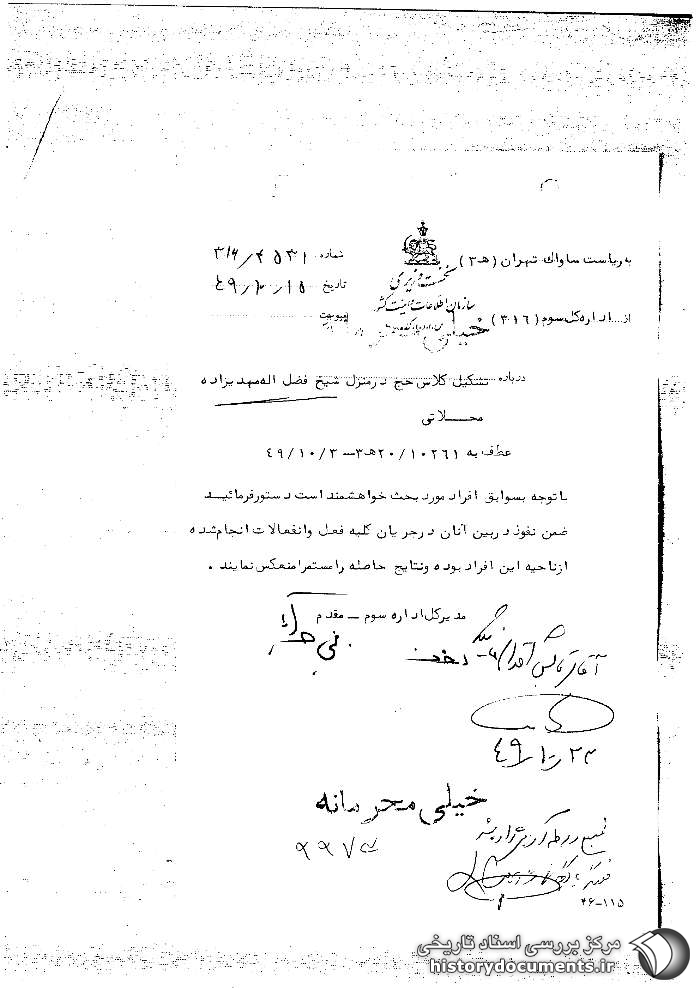 به ریاست ساواک تهران (ه‍ ۳)
از اداره کل سوم (۳۱۶)
نخست وزیری
سازمان اطلاعات و امنیت کشور
شماره ۳۱۶/۴۵۳۱
تاریخ
پیوست
درباره تشکیل کلاس حج در منزل شیخ فضل اله مهدیزاده
محلاتی
عطف به ۲۰/۱۰۲۶۱ ه‍ ۳ – ۴۹/۱۰/۳
با توجه بسوابق افراد مورد بحث خواهشمند است دستور فرمائید
ضمن نفوذ در بین آنان در جریان کلیه فعل وانفعالات انجام شده
از ناحیه این افراد بوده ونتایج حاصله را مستمرا منعکس نمایند .
مدیرکل اداره سوم – مقدم
خیلی محرمانه
۴۶-۱۱۵
مرکز بررسی اسناد تاریخی
historydocuments.ir